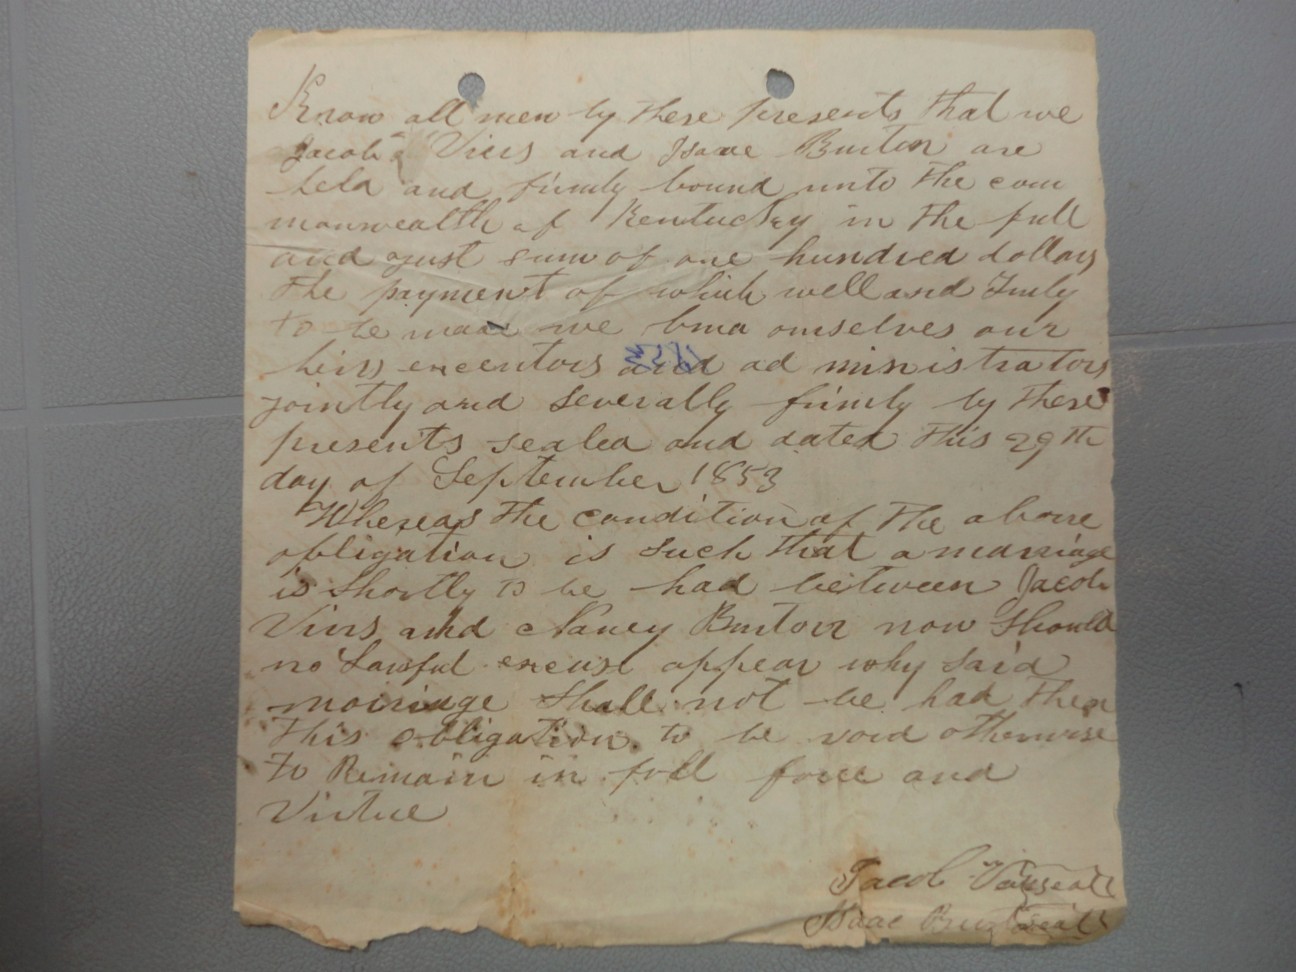 Know all men by these presents that we
Jacob Vires and Isaac Burton are
held and firmly bound unto the com
monwealth of Kentucky in the full
and just sum of one hundred dollars
the payment of which well and Truly
to be made we bind ourselves our
heirs executors and ad ministrators
1853
jointly and severally firmly by these
presents sealed and dated this 29th
day of September 1853
Whereas the condition of the above
obligation is such that a marriage
is Shortly to be had between Jacob
Vires and Nancy Burton now Should
no Lawful excuse appear why said
mairiage Shall not be had then
this obligation to be void otherwise
to Remain in full force and
Virtue
Jacob seal
Isaac Burton seal